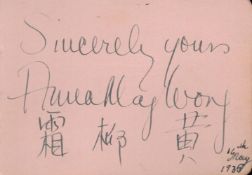 Sincerely yours
Anna May Wong
霜 柳 黄
May
193